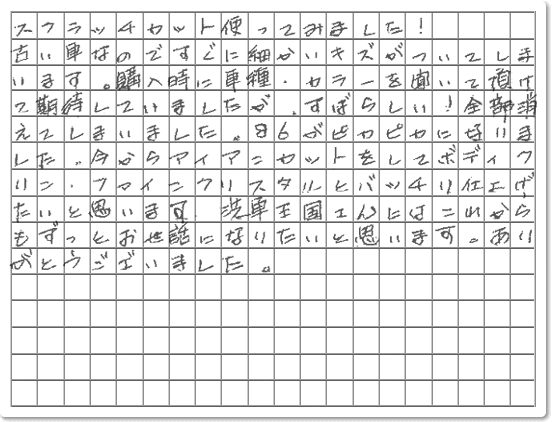 スクラッチカット使ってみました!
古い車なのですぐに細かいキズがついてしま
います。購入時に車種・カラーを聞いて頂け
て期待していましたが、すばらしい!全部消
えてしまいました。86がピカピカになりま
した。今からアイアンカットをしてボディク
リン・ファインクリスタルとバッチリ仕上げ
たいと思います。洗車王国さんにはこれから
もずっとお世話になりたいと思います。あり
がとうございました。